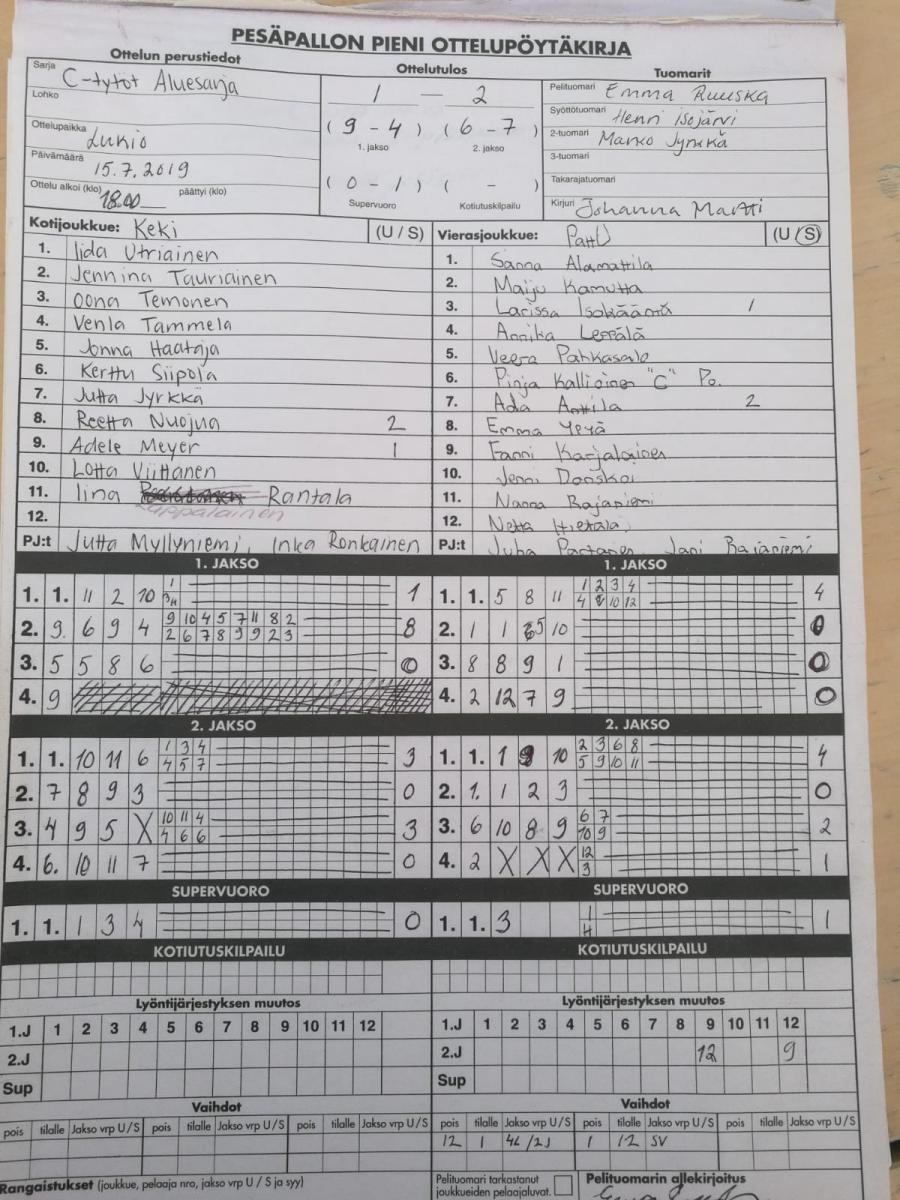 PESÄPALLON PIENI OTTELUPÖYTÄKIRJA
Ottelun perustiedot
Ottelutulos
Tuomarit
Sarja C-tytöt Aluesarja
Lohko
Ottelupaikka Lukio
Päivämäärä 15.7.2019
Ottelu alkoi (klo) 18.00 päättyi (klo)
1 – 2
( 9 - 4 ) ( 6 - 7 )
1. jakso 2. jakso
( 0 - 1 ) ( - )
Supervuoro Kotiutuskilpailu
Pelituomari Emma Ruuska
Syöttötuomari Henri Isojärvi
2-tuomari Marko Jyrkkä
3-tuomari
Takarajatuomari
Kirjuri Johanna Martti
Kotijoukkue: Keki (U / S)
1. Iida Utriainen
2. Jennina Tauriainen
3. Oona Temonen
4. Venla Tammela
5. Jonna Haataja
6. Kerttu Siipola
7. Jutta Jyrkkä
8. Reetta Nuojua 2
9. Adele Meyer 1
10. Lotta Viittanen
11. Iina Rantala
Lappalainen
12.
PJ:t Jutta Myllyniemi, Inka Ronkainen
Vierasjoukkue: PattU (U / S)
1. Sanna Alamattila
2. Maiju Kamutta
3. Larissa Isokäämä 1
4. Annika Leppälä
5. Veera Pahkasalo
6. Pinja Kallioinen "C" Po.
7. Ada Anttila 2
8. Emma Yeyä
9. Fanni Karjalainen
10. Jenni Donskoi
11. Nanna Rajaniemi
12. Netta Hietala
PJ:t Juha Partanen Jani Rajaniemi
1. JAKSO
1. 1. 11 2 10 1
2. 9. 6 9 4 9 10 4 5 7 11 8 2 8
2 6 7 8 9 9 2 3
3. 5 5 8 6 0
4. 9
1. JAKSO
1. 1. 5 8 11 1 2 3 4 4
4 8 10 12
2. 1 1 5 10 0
3. 8 8 9 1 0
4. 2 12 7 9 0
2. JAKSO
1. 1. 10 11 6 1 3 4 3
4 5 7
2. 7 8 9 3 0
3. 4 9 5 X 10 11 4 3
4 6 6
4. 6. 10 11 7 0
2. JAKSO
1. 1. 1 9 10 2 3 6 8 4
5 9 10 11
2. 1. 1 2 3 0
3. 6 10 8 9 6 7 2
10 9
4. 2 X X X 12 1
3
SUPERVUORO
1. 1. 1 3 4 0
SUPERVUORO
1. 1. 3 1 1
4
KOTIUTUSKILPAILU
KOTIUTUSKILPAILU
Lyöntijärjestyksen muutos
1.J 1 2 3 4 5 6 7 8 9 10 11 12
2.J
Sup
Lyöntijärjestyksen muutos
1.J 1 2 3 4 5 6 7 8 9 10 11 12
2.J 12 9
Sup
Vaihdot
pois tilalle Jakso vrp U/S pois tilalle Jakso vrp U/S pois tilalle Jakso vrp U/S
Vaihdot
pois tilalle Jakso vrp U/S pois tilalle Jakso vrp U/S pois tilalle Jakso vrp U/S
12 1 4L/2J 1 12 SV
Rangaistukset (joukkue, pelaaja nro, jakso vrp U / S ja syy)
Pelituomari tarkastanut
joukkueiden pelaajaluvat.
Pelituomarin allekirjoitus